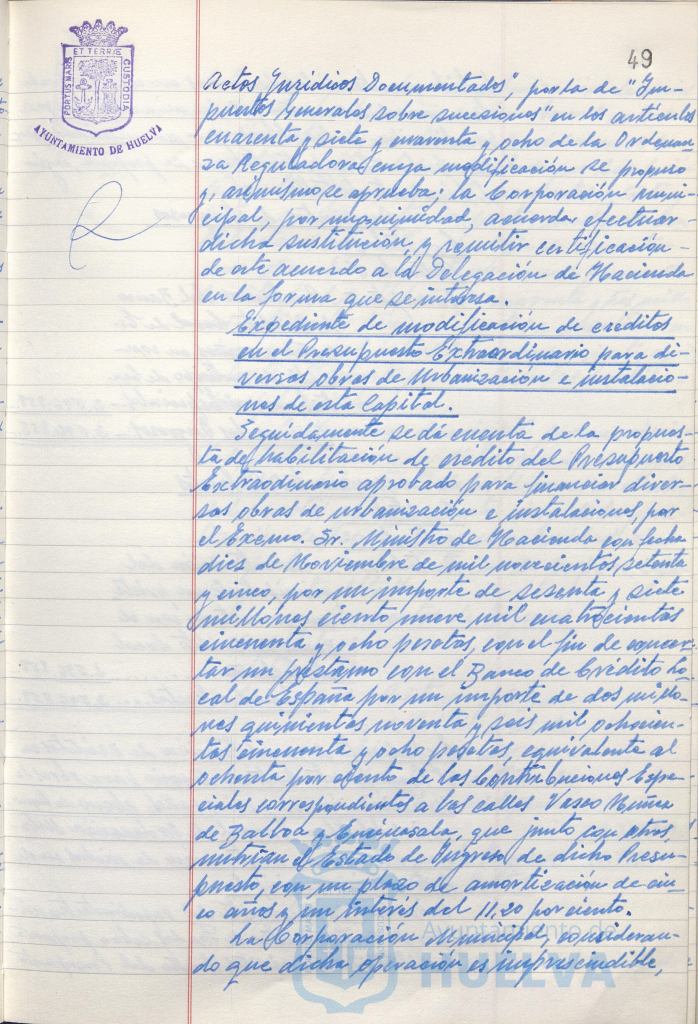 49
PORTUS MARIS ET TERRÆ CUSTODIA
AYUNTAMIENTO DE HUELVA
Actos Jurídicos Documentados", por la de "Im-
puestos Generales sobre sucesiones" en los artículos
cuarenta y siete y cuarenta y ocho de la Ordenan
za Reguladora, cuya modificación se propuso
y, asimismo se aprueba; la Corporación muni-
cipal, por unanimidad, acuerda efectuar
dicha sustitución, y remitir certificación
de este acuerdo a la Delegación de Hacienda
en la forma que se interesa.
Expediente de modificación de créditos
en el Presupuesto Extraordinario para di-
versas obras de Urbanización e instalacio-
nes de esta Capital.
Seguidamente se dá cuenta de la propues-
ta de habilitación de credito del Presupuesto
Extraordinario aprobado para financiar diver-
sas obras de urbanización e instalaciones, por
el Excmo. Sr. Ministro de Hacienda con fecha
diez de Noviembre de mil novecientos setenta
y cinco, por un importe de sesenta y siete
millones ciento nueve mil cuatrocientas
cincuenta y ocho pesetas, con el fin de concer-
tar un préstamo con el Banco de Crédito Lo-
cal de España por un importe de dos millo-
nes quinientas noventa y seis mil ochocien-
tas cincuenta y ocho pesetas, equivalente al
ochenta por ciento de las Contribuciones Espe-
ciales correspondientes a las calles Vasco Núñez
de Balboa y Ensenada, que junto con otros,
nutrían el Estado de Ingreso de dicho Presu-
puesto, con un plazo de amortización de cin-
co años y un interés del 11,20 por ciento.
La Corporación Municipal, consideran-
do que dicha operación es imprescindible,
Ayuntamiento de
HUELVA